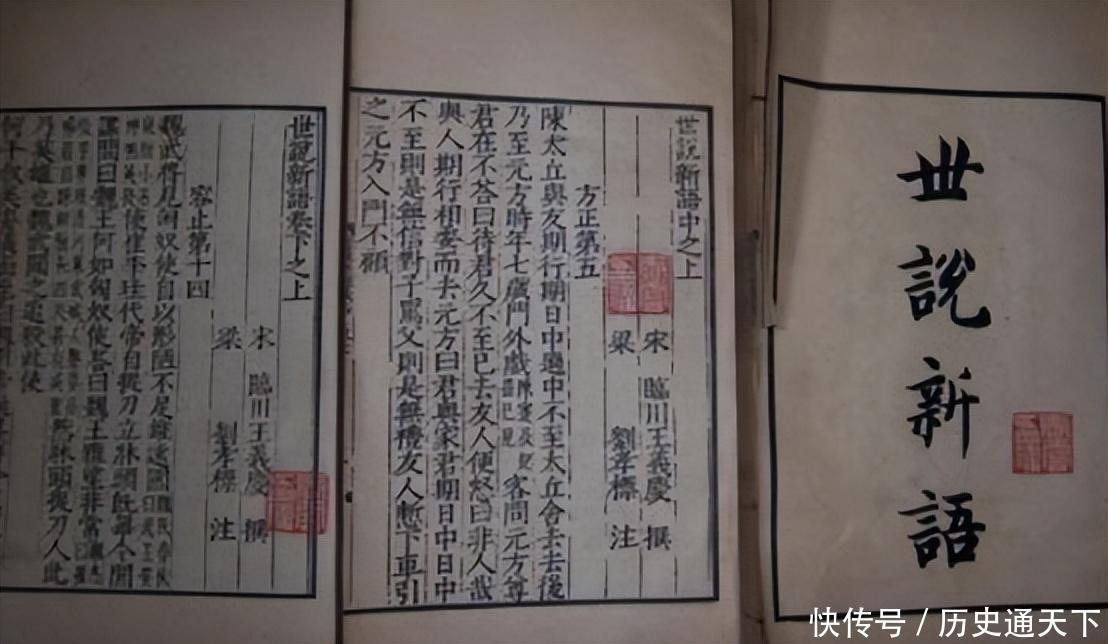 世說新語
世說新語中之上
宋 臨川王義慶 撰
梁 劉孝標 注
方正第五
陳太丘與友期行期日中過中不至太丘舍去去後
乃至元方時年七歲門外戲 陳寔及紀並已見 客問元方尊
君在不答曰待君久不至已去友人便怒曰非人哉
與人期行相委而去元方曰君與家君期日中日中
不至則是無信對子罵父則是無禮友人慙下車引
之元方入門不顧
世說新語卷下之上
宋 臨川王義慶 撰
梁 劉孝標 注
容止第十四
魏武將見匈奴使自以形陋不足雄遠國
使崔季珪代帝自捉刀立牀頭既畢令間
諜問曰魏王何如匈奴使答曰魏王雅望非常
然牀頭捉刀人此
乃英雄也魏武聞之追殺此使
快传号 / 历史通天下